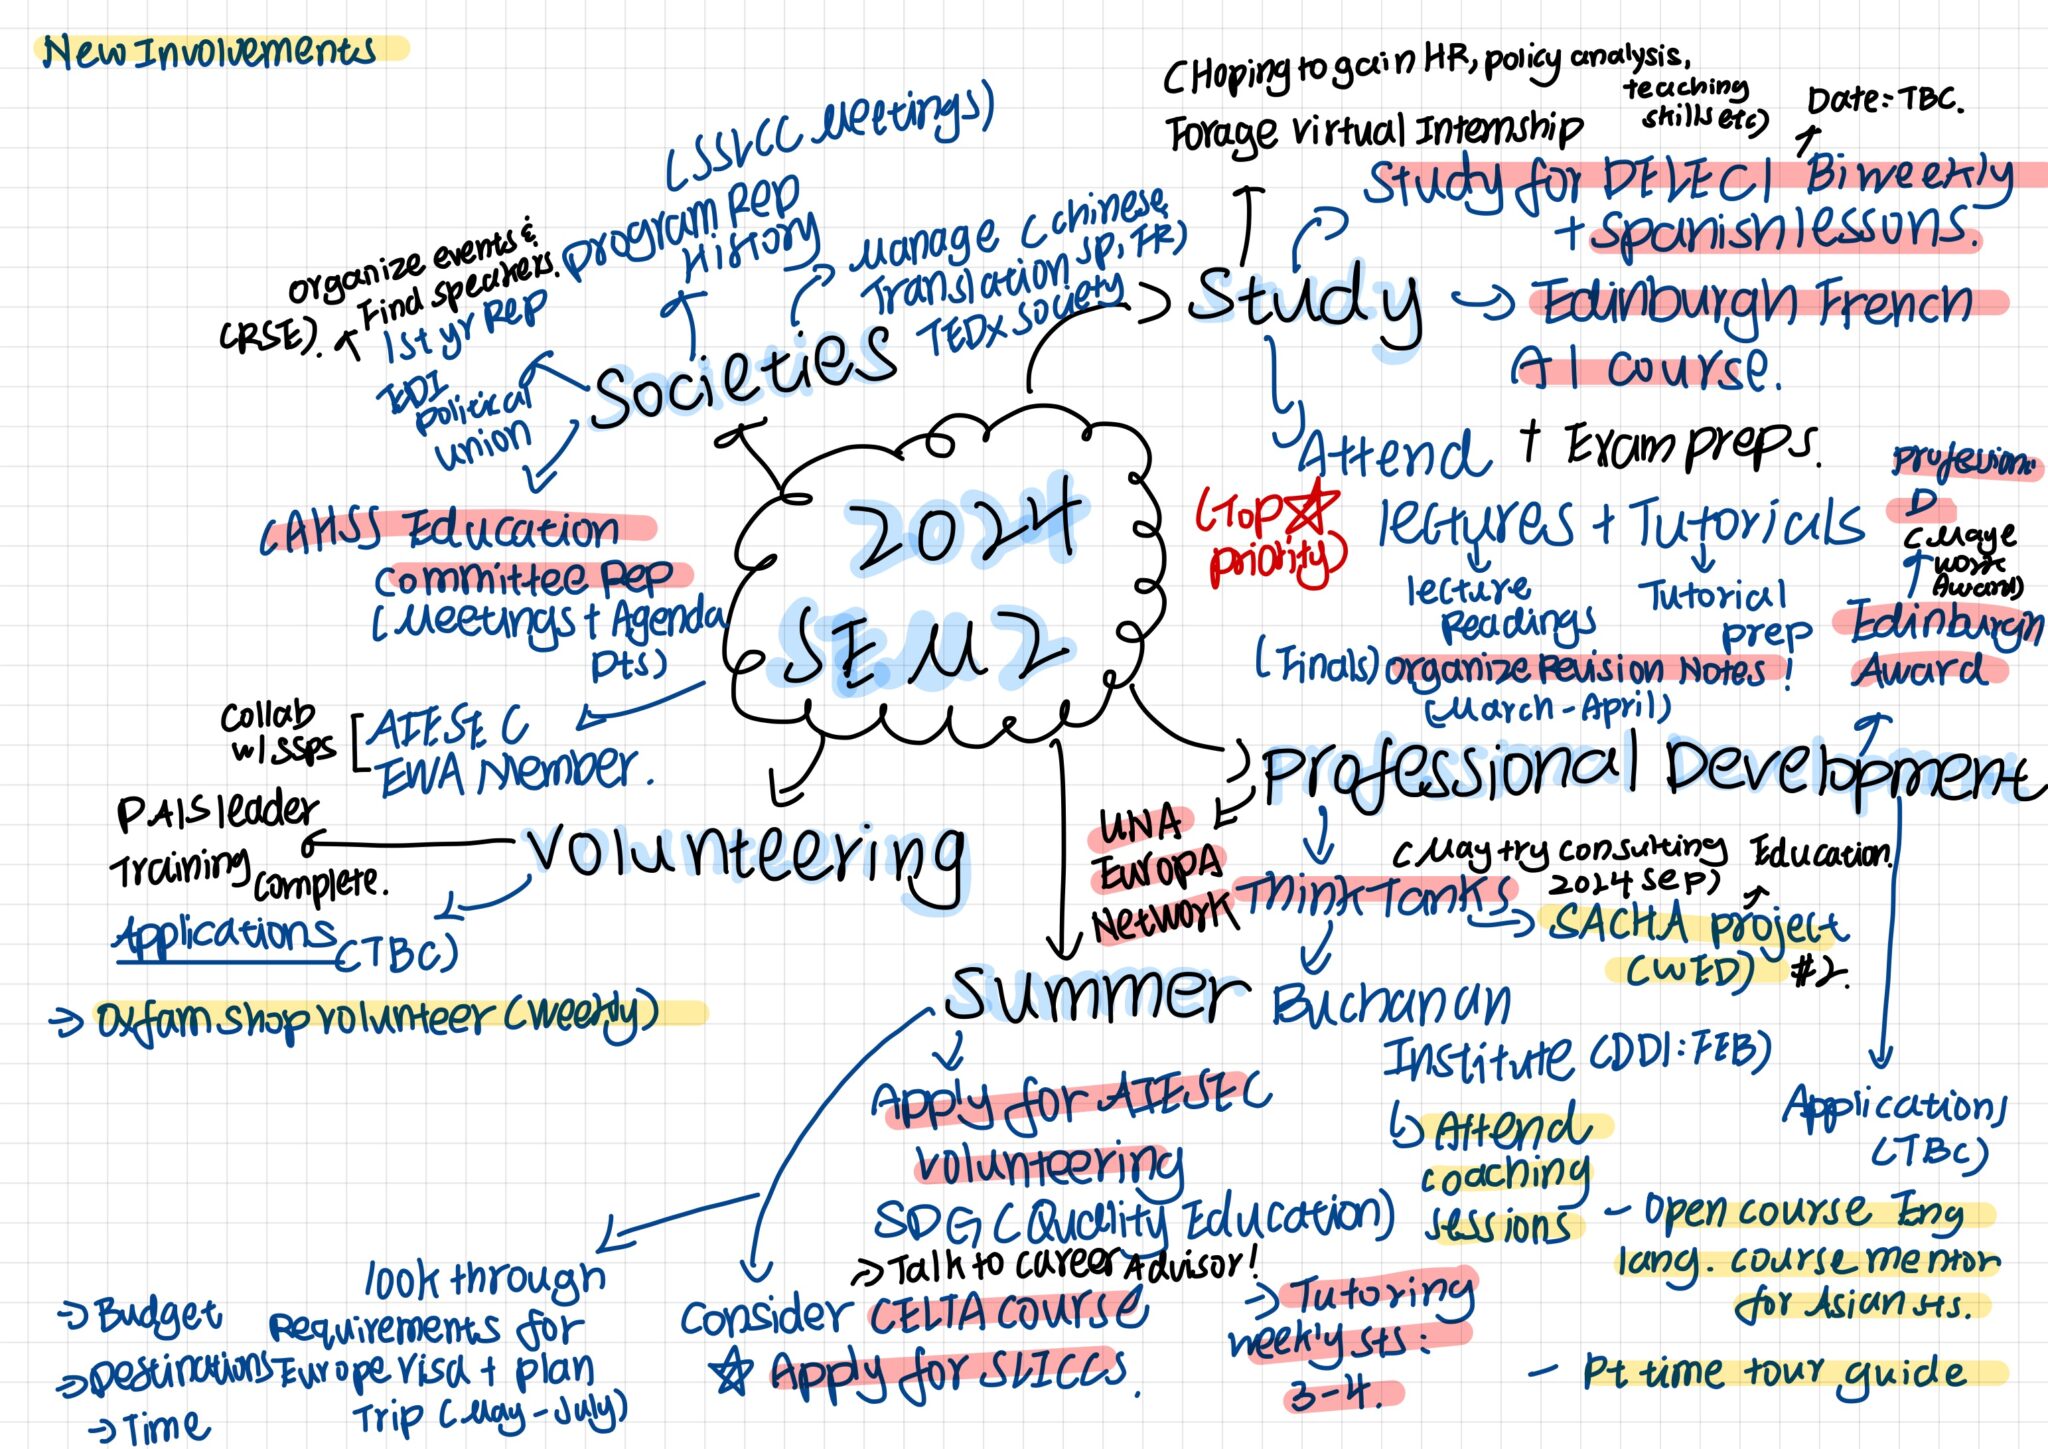 New Involvements
(SSLCC Meetings)
Program Rep
History
organize events &
Find speakers.
(RSE).
1st yr Rep
EDI
political
union
Manage (Chinese,
Translation SP, FR)
TEDx society
Societies
CAHSS Education
Committee Rep
(Meetings + Agenda
pts)
(Hoping to gain HR, policy analysis,
teaching
skills etc)
Forage virtual Internship
Date: TBC.
Study for DELE C1 Biweekly
+ Spanish lessons.
Study
Edinburgh French
AI course.
Attend + Exam preps.
(Top
priority)
lectures + Tutorials
lecture
Readings
Tutorial
prep
(Finals) organize Revision Notes!
(March - April)
2024
SEM 2
Profession
D
(Maye
work
Award)
Edinburgh
Award
Professional Development
UNA
EUROPA
Network
Think Tanks
(May try consulting
2024 Sep)
Education
SACHA project
(WED) #2.
Buchanan
Institute (DDI: FEB)
Attend
coaching
sessions
Applications
(TBC)
- Open course Eng
lang. course mentor
for Asian sts.
- Pt time tour guide
Collab
w/ SSPS
AIESEC
EWA Member.
Volunteering
PALS leader
Training complete.
Applications (TBC)
Oxfam shop volunteer (weekly)
Summer
Apply for AIESEC
volunteering
SDG (Quality Education)
Talk to career Advisor!
Consider CELTA course
Apply for SLICCS.
Tutoring
weekly sts:
3-4.
look through
Requirements for
Europe visa + plan
Trip (May - July)
Budget
Destinations
Time